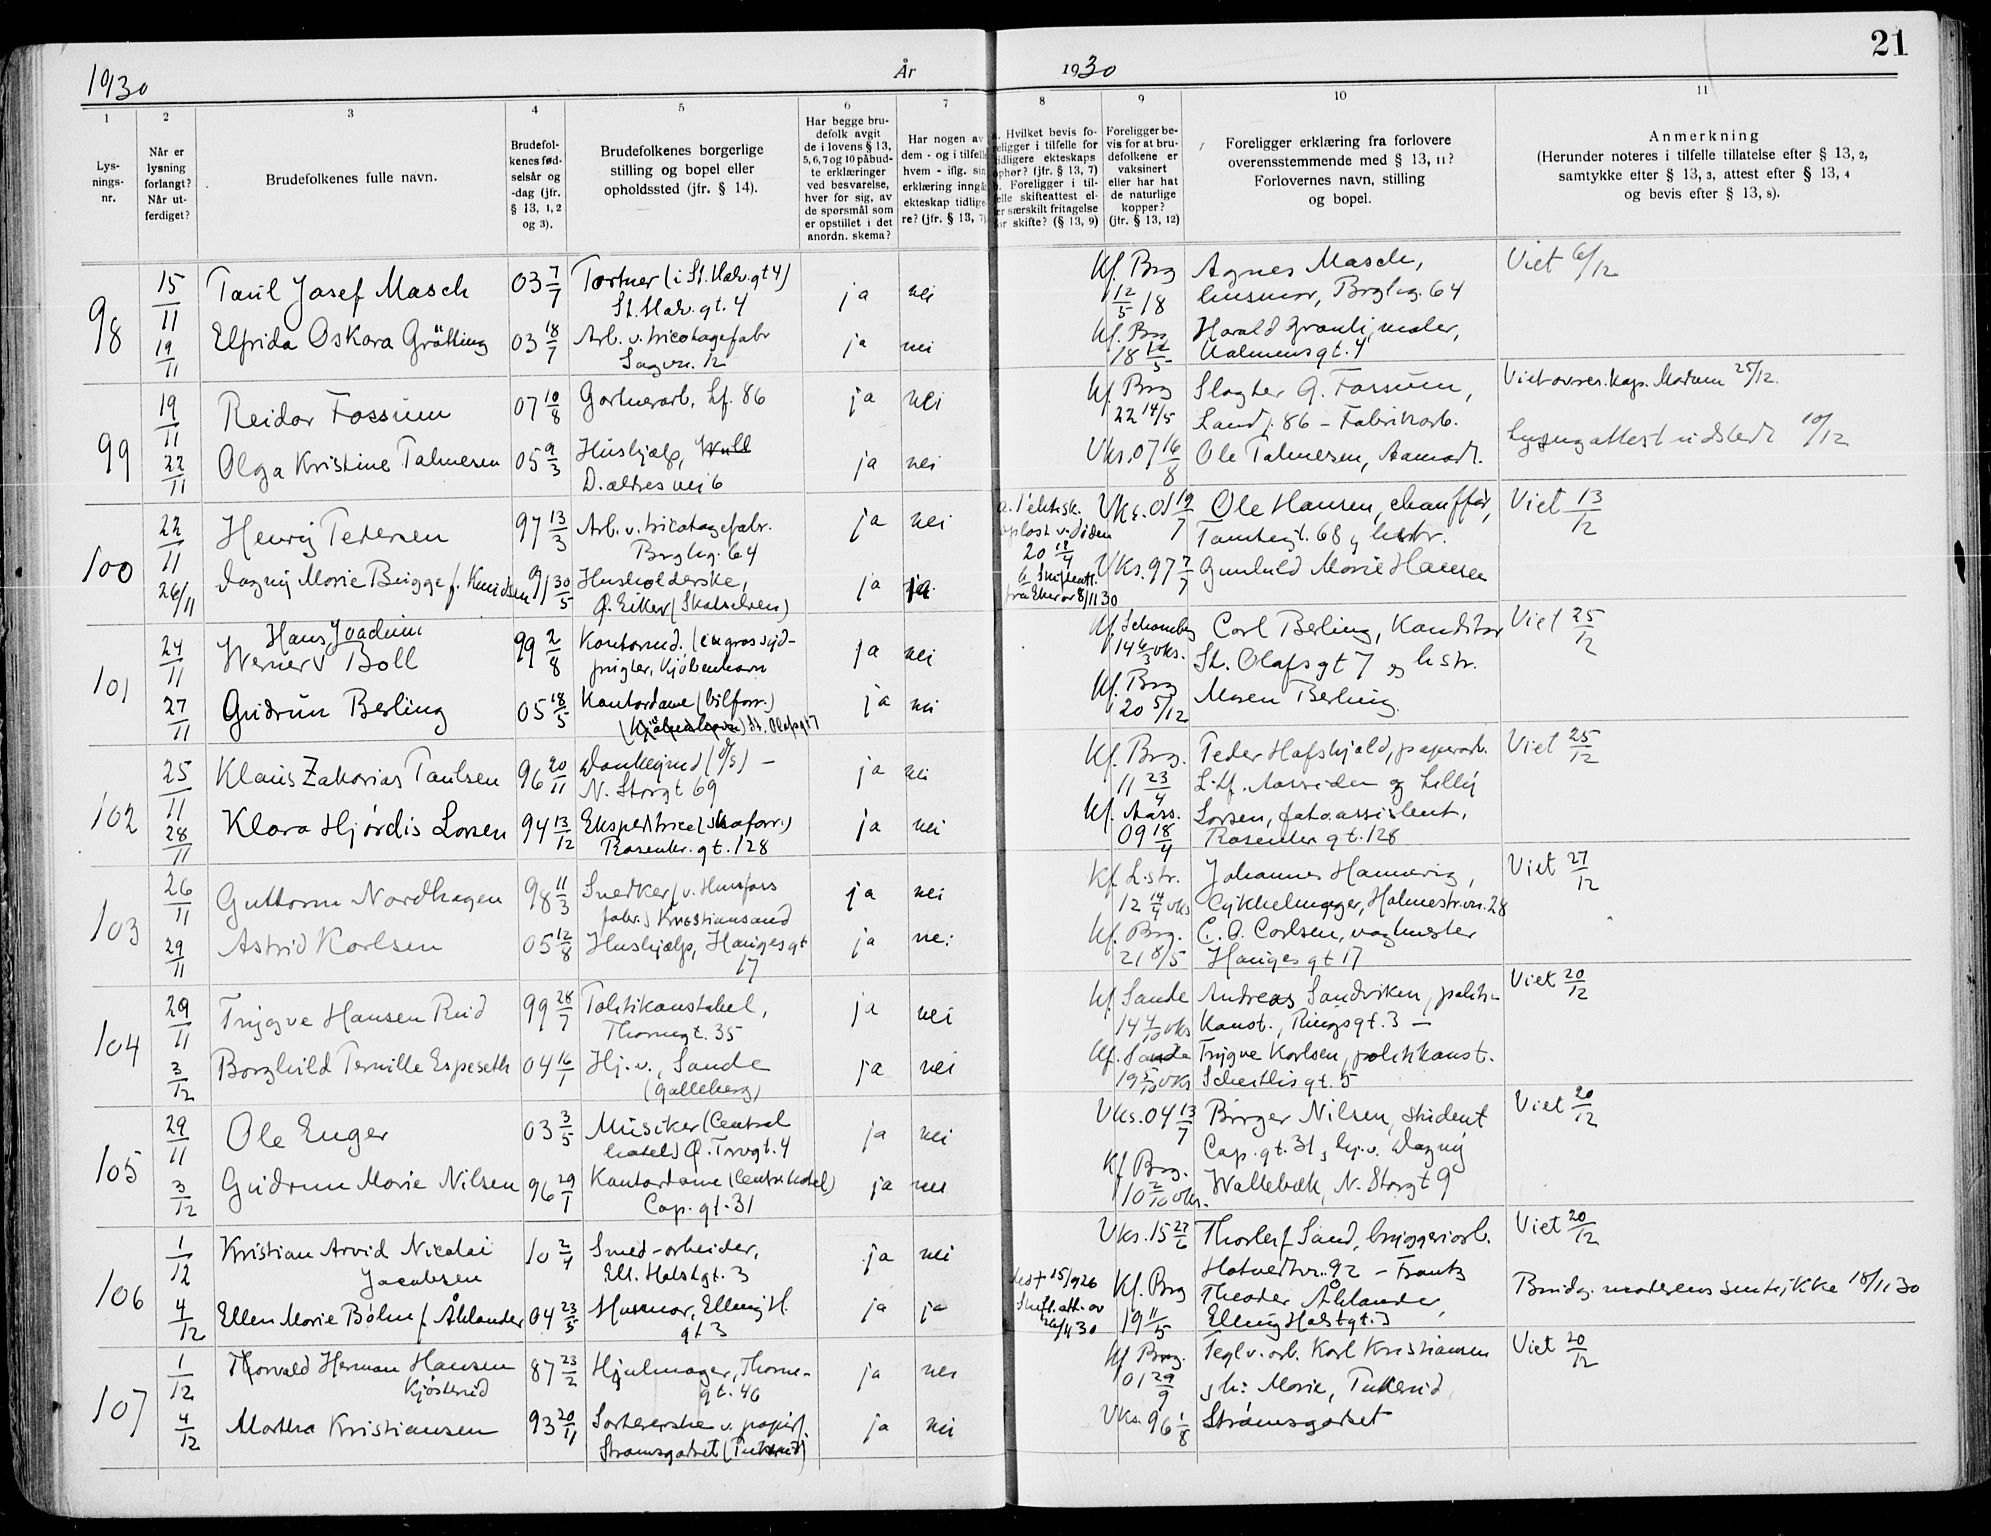 21
1930
År
1930
1
2
3
4
5
6
7
8
9
10
11
Lys-
nings-
nr.
Når er
lysning
forlangt?
Når ut-
ferdiget?
Brudefolkenes fulle navn.
Brudefol-
kenes fød-
selsår og
-dag (jfr.
§ 13, 1, 2
og 3).
Brudefolkenes borgerlige
stilling og bopel eller
opholdssted (jfr. § 14).
Har begge bru-
defolk avgit
de i lovens § 13,
5, 6, 7 og 10 påbud-
te erklæringer
ved besvarelse,
hver for sig, av
de spørsmål som
er opstillet i det
anordn. skema?
Har nogen av
dem - og i tilfelle
hvem - iflg. sin
erklæring inngått
ekteskap tidlige-
re? (jfr. § 13, 7)
Hvilket bevis fo-
religger i tilfelle for
tidligere ekteskaps
ophør? (jfr. § 13, 7)
Foreligger i til-
felle skifteattest el-
ler særskilt fritagelse
for skifte? (§ 13, 9)
Foreligger be-
vis for at bru-
defolkene er
vaksinert
eller har hat
de naturlige
kopper?
(jfr. § 13, 12)
Foreligger erklæring fra forlovere
overensstemmende med § 13, 11?
Forlovernes navn, stilling
og bopel.
Anmerkning
(Herunder noteres i tilfelle tillatelse efter § 13, 2,
samtykke efter § 13, 3, attest efter § 13, 4
og bevis efter § 13, 8).
98
15/11 Paul Josef Masch 03 7/7 ja nei Kf. Brg Agnes Masch, Viet 6/12
St. Halv. gt. 4 12/5 18 husmor, Brglvg. 64
19/11 Elfrida Oskara Grötting 03 18/7 Arb. v. tricotagefabr ja nei Kf. Brg Harald maler,
Sagvn. 12 18 12/5 gt. 4
99
19/11 Reidar Fossum 07 10/8 Gartnerarb, Lf. 86 ja nei Kf. Brg Slagter G. Fossum, Viet overs. kap. Modum 25/12.
22 14/5 Landf. 86 - Fabrikarb.
22/11 Olga Kristine Palmesen 05 9/3 Hushjælp, ja nei Vks. 07 16/8 Ole Palmesen, Aamodt. Lysingattest utstedt 10/12
vei 6
100
22/11 Henry Petersen 97 13/3 Arb. v. tricotagefabr. ja nei Vks. 01 19/7 Ole Hansen, chauffør, Viet 13/12
Brglvg. 64 opløst v. døden 68 hstr.
20 18/4
26/11 Dagny Marie Brigge f. Knudsen 91 30/5 Husholderske, ja ja Vks. 97 7/7 Gunhild Marie Hansen
Ø. Eiker (Skotselven) 8/11 30
101
Hans Joachim
24/11 Werner Boll 99 2/8 ja nei Kf. 14 Carl Berling, Konditor Viet 25/12
Kjøbenhavn St. Olafs gt 7 og hstr.
27/11 Gudrun Berling 05 18/5 Kontordame (bilforr.) ja nei Kf. Brg Maren Berling.
St. Olafs gt 7 20 5/12
102
25/11 Klaus Zakarias Paulsen 96 20/11 ja nei Kf. Brg. Peder Hafskjold, papirarb. Viet 25/12
N. Storgt 69 11 23/4 og Lilly
28/11 Klara Hjørdis Larsen 94 13/12 Ekspeditrice (skoforr.) ja nei Kf. Aass. Larsen, fotoassistent,
Rosenkr. gt. 128 09 18/4 Rosenkr gt. 128
103
26/11 Guttorm Nordhagen 98 11/3 Snedker (v. Hunsfoss ja nei Kf. L.str. Johannes Hannevig, Viet 27/12
fabr.) Kristiansand 12 vks Cykkelmager, Holmestr. vn. 28
29/11 Astrid Karlsen 05 12/8 Hushjælp, Hauges gt ja nei Kf. Brg. C. O. Carlsen, vagtmester
17 21 8/5 Hauges gt 17
104
29/11 Trygve Hansen Ruud 99 28/7 Politikonstabel, ja nei Kf. Sande Andreas Sandviken, politi- Viet 20/12
Thornegt. 35 14 vks konst., Ringsgt. 3 -
3/12 Borghild Pernille Espeseth 04 16/1 Hj. v., Sande ja nei Kf. Sande Trygve Karlsen, politikonst.
(Galleberg) 19 vks Scheitlis gt. 5
105
29/11 Ole Enger 03 3/5 Musiker (Central ja nei Vks. 04 13/7 Birger Nilsen, student Viet 20/12
hotel) Ø. Torvgt. 4 Cap. gt. 31, hj. v. Dagny
3/12 Gudrun Marie Nilsen 96 29/1 Kontordame (Centr. hotel) ja nei Kf. Brg. Wallebæk, N. Storgt 9
Cap. gt. 31 10 2/10 vks.
106
1/12 Kristian Arvid Nicolai 10 2/4 Smed-arbeider, ja nei Vks. 15 27/6 Thorleif Sand, bryggeriarb. Viet 20/12
Jacobsen Ell. Holstgt. 3 Hotvedtvn. 92 - Frantz
4/12 Ellen Marie Bøhn f. Åhlander 04 23/5 Husmor, Elling H. ja ja Kf. Brg Theodor Åhlander, Brudg. moderens samtykke 18/11 30
gt 3 19 11/5 Elling Holstgt. 3
107
1/12 Thorvald Herman Hansen 87 23/2 Hjulmager, Thorne- ja nei Kf. Brg. Teglv. arb. Karl Kristiansen Viet 20/12
Kjøsterud gt. 46 01 29/9 h: Marie,
4/12 Martha Kristiansen 93 20/11 Sortererske v. papirf. ja nei Vks. 96 1/8 Strømsgodset
Strømsgodset